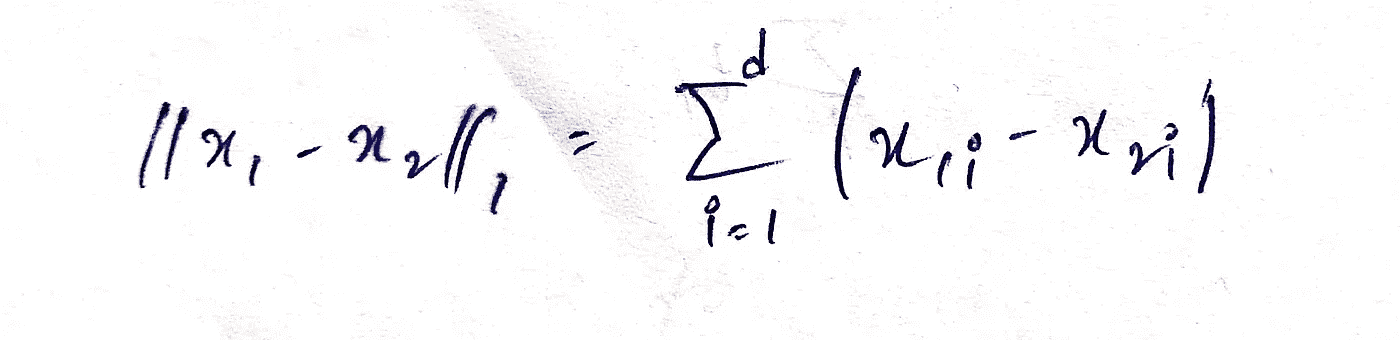 ||x₁ - x₂||₁ = ∑ᵢ₌₁ᵈ (x₁ᵢ - x₂ᵢ)